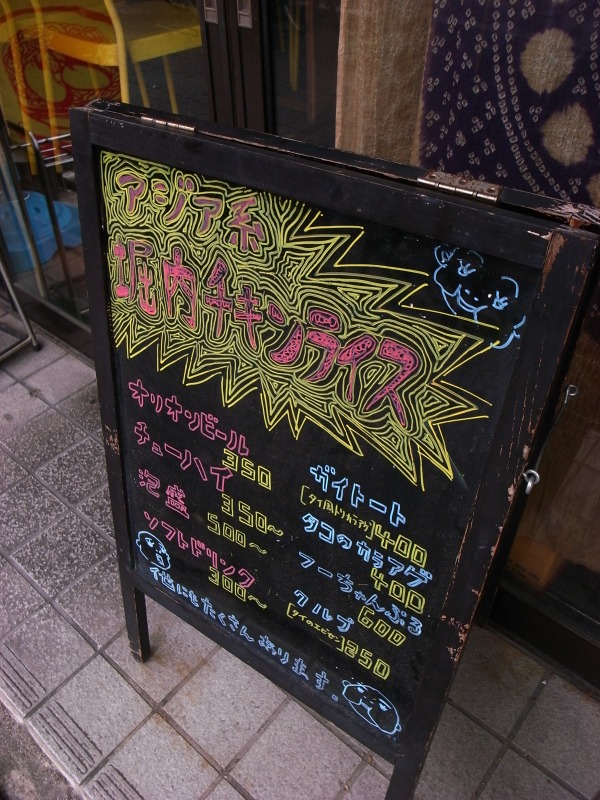 アジア系
堀内チキンライス
オリオンビール
350
チューハイ
350〜
泡盛
500〜
ソフトドリンク
300〜
ガイトート
[タイ風トリカラアゲ]400
タコのカラアゲ
400
フーちゃんぷる
600
クルプ
[タイのエビセン]250
他にもたくさんあります。